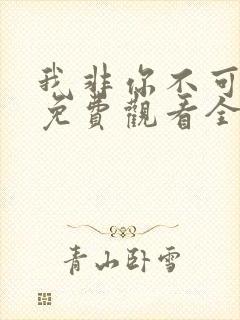 我非你不可
免費觀看全
青山臥雪